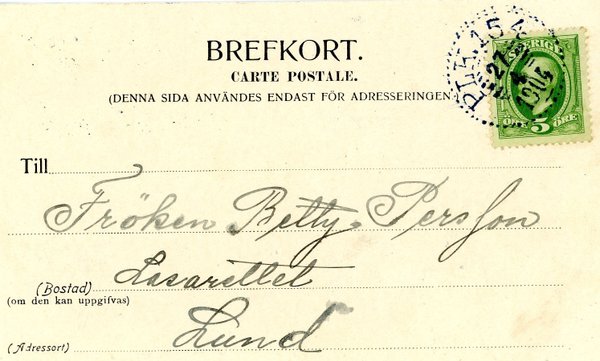 BREFKORT.
CARTE POSTALE.
(DENNA SIDA ANVÄNDES ENDAST FÖR ADRESSERINGEN.)
SVERIGE
5
ÖRE
27
4
1904
Till
Fröken Betty Persson
(Bostad) Lasarettet
(om den kan uppgifvas)
Lund
(Adressort)